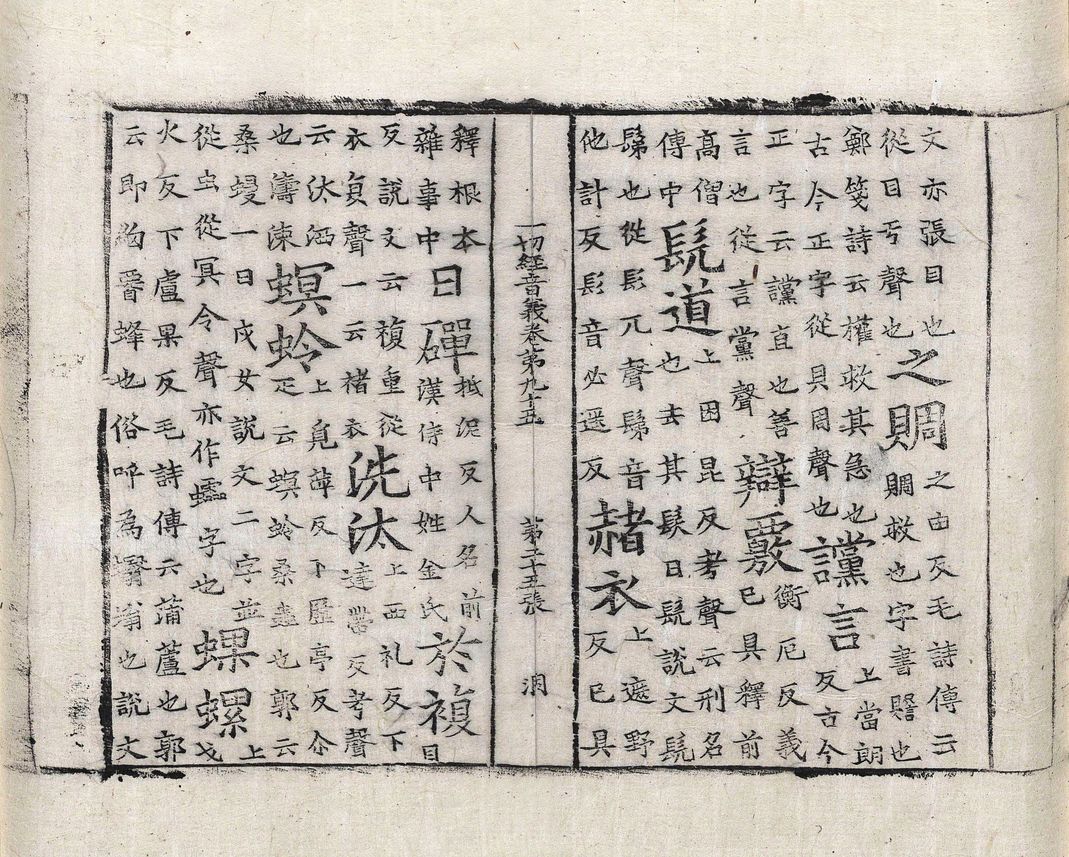 文亦張目也
從目丂聲也
之賙
之由反毛詩傳云
賙救也字書贍也
鄭箋詩云權救其急也
古今正字從貝周聲也
讜言
上當朗
反古今
正字云讜直也善
言也從言黨聲
辯覈
衡厄反義
已具釋前
高僧
傳中
髡道
上困昆反考聲云刑名
也去其髮曰髡說文髡
髴也從髟兀聲髴音
他計反髟音必遥反
赭衣
上遮野
反已具
一切經音義卷第九十五 第二十五張 洞
釋根本
雜事中
日磾
抵泥反人名前
漢侍中姓金氏
於複
目
反說文云複重從
衣复聲一云褚衣
洗汰
上西礼反下
達帶反考聲
云汰洒
也濤涑
螟蛉
上覓萍反下歷亭反尒
疋云螟蛉桑蟲也郭云
桑蟃一曰戍女說文二字並
從虫從冥令聲亦作字也
蜾螺
上
戈
火反下盧果反毛詩傳云蒲蘆也郭
云即蜂也俗呼為蠮螉也說文